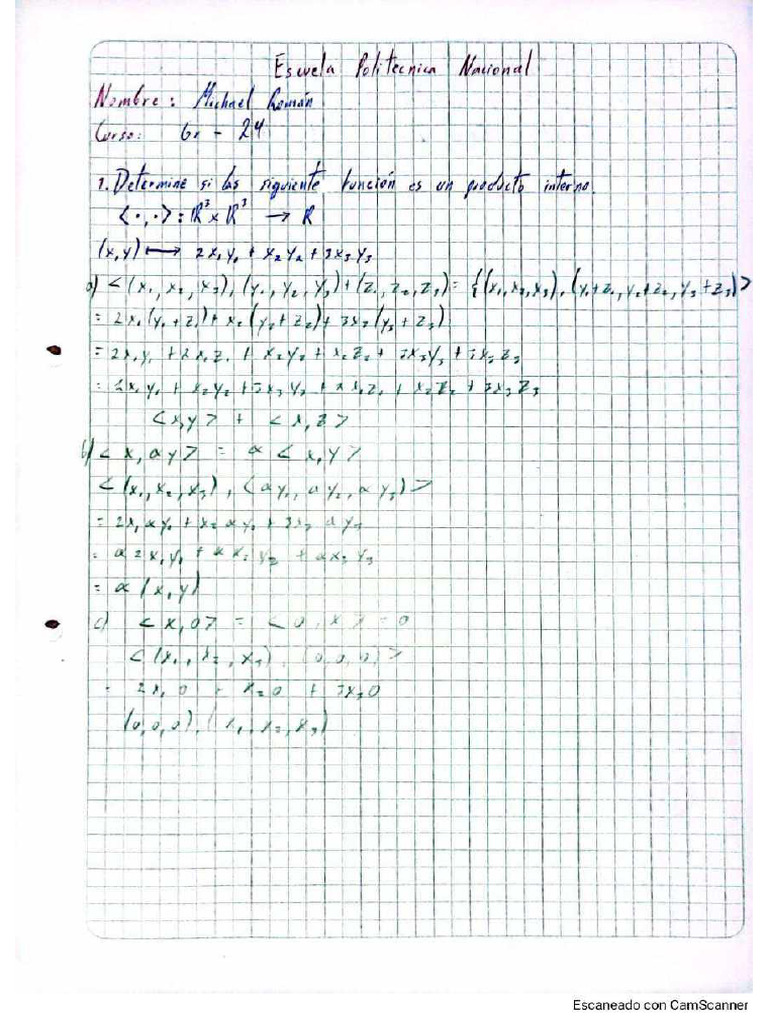 Escuela Politecnica Nacional
Nombre: Michael Román
Curso: Gr - 24
1. Determine si las siguiente función es un producto interno.
< ·, · > : ℝ³ x ℝ³ → ℝ
(x,y) ⟼ 2x₁y₁ + x₂y₂ + 3x₃y₃
a) <(x₁, x₂, x₃), (y₁, y₂, y₃) + (z₁, z₂, z₃) = {(x₁, x₂, x₃), (y₁+z₁, y₂+z₂, y₃+z₃)>
= 2x₁(y₁+z₁) + x₂(y₂+z₂) + 3x₃(y₃+z₃)
= 2x₁y₁ + 2x₁z₁ + x₂y₂ + x₂z₂ + 3x₃y₃ + 3x₃z₃
= 2x₁y₁ + x₂y₂ + 3x₃y₃ + 2x₁z₁ + x₂z₂ + 3x₃z₃
<x,y> + <x,z>
b) <x, αy> = α <x,y>
<(x₁, x₂, x₃), (αy₁, αy₂, αy₃)>
= 2x₁αy₁ + x₂αy₂ + 3x₃αy₃
= α2x₁y₁ + αx₂y₂ + αx₃y₃
= α(x,y)
c) <x,0> = <0,x> = 0
<(x₁, x₂, x₃), (0,0,0)>
= 2x₁0 + x₂0 + 3x₃0
(0,0,0), (x₁, x₂, x₃)
Escaneado con CamScanner